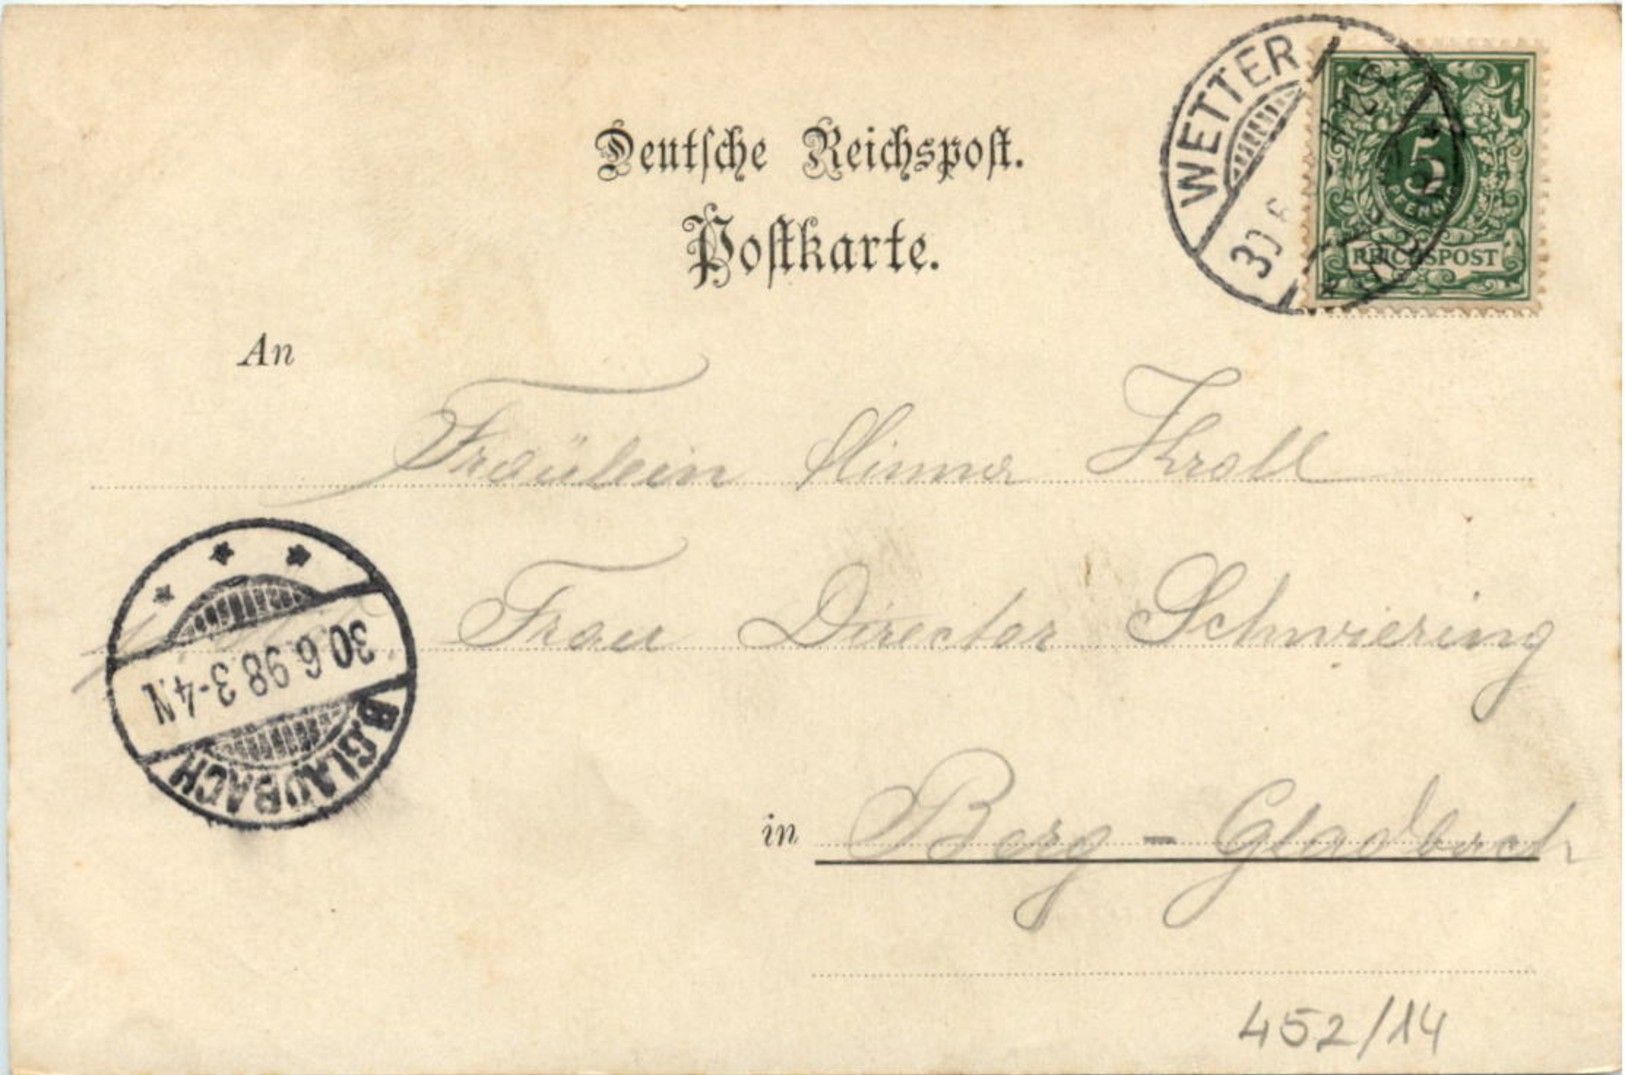 Deutsche Reichspost.
Postkarte.
WETTER
30 6
5
PFENNIG
REICHSPOST
An
Fräulein Minna Kroll
Frau Director Schwiering
30.6.98.3-4N
B.GLADBACH
in Berg-Gladbach
452/14